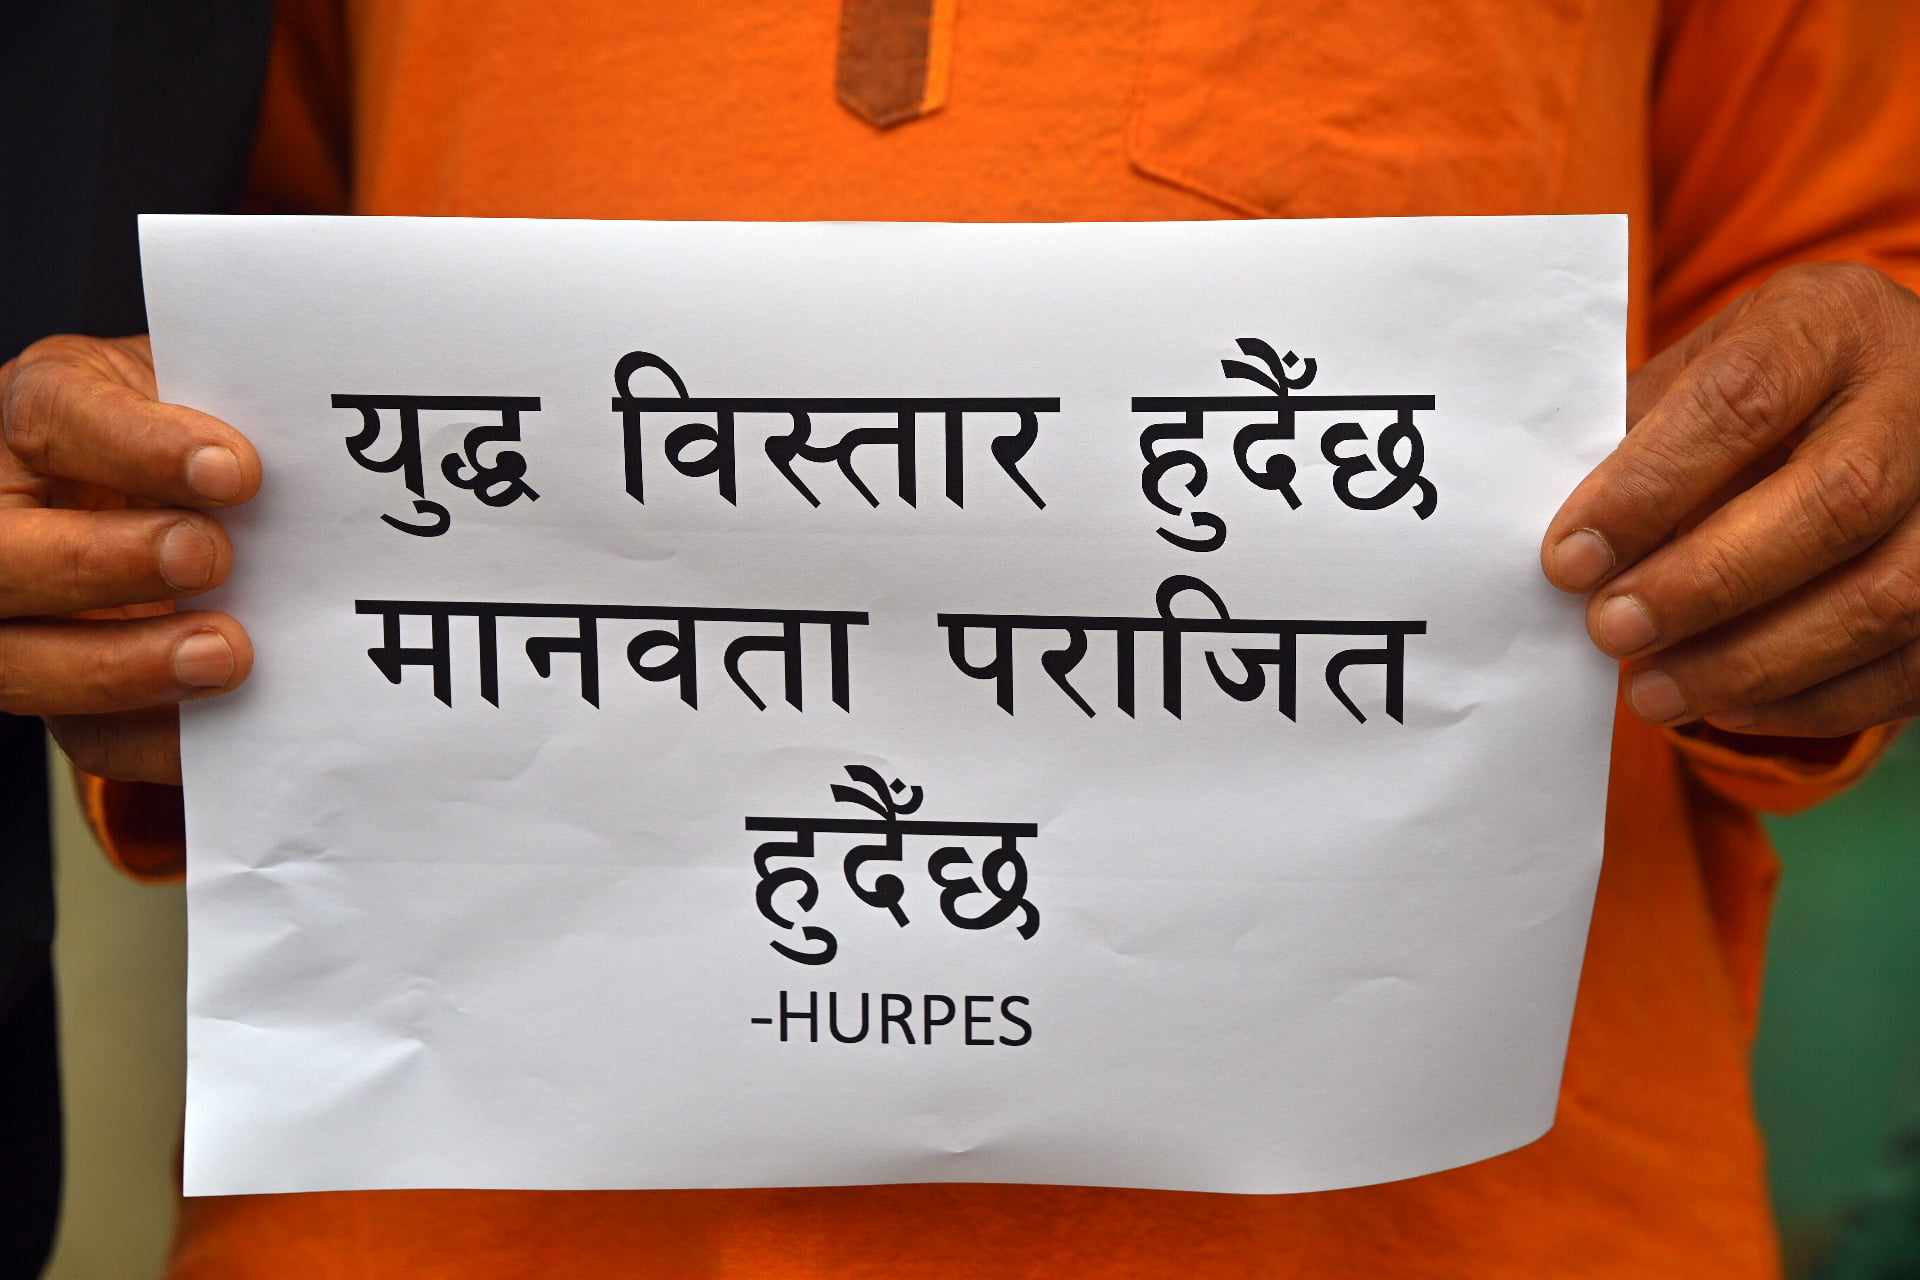 युद्ध विस्तार हुदैँछ
मानवता पराजित
हुदैँछ
-HURPES